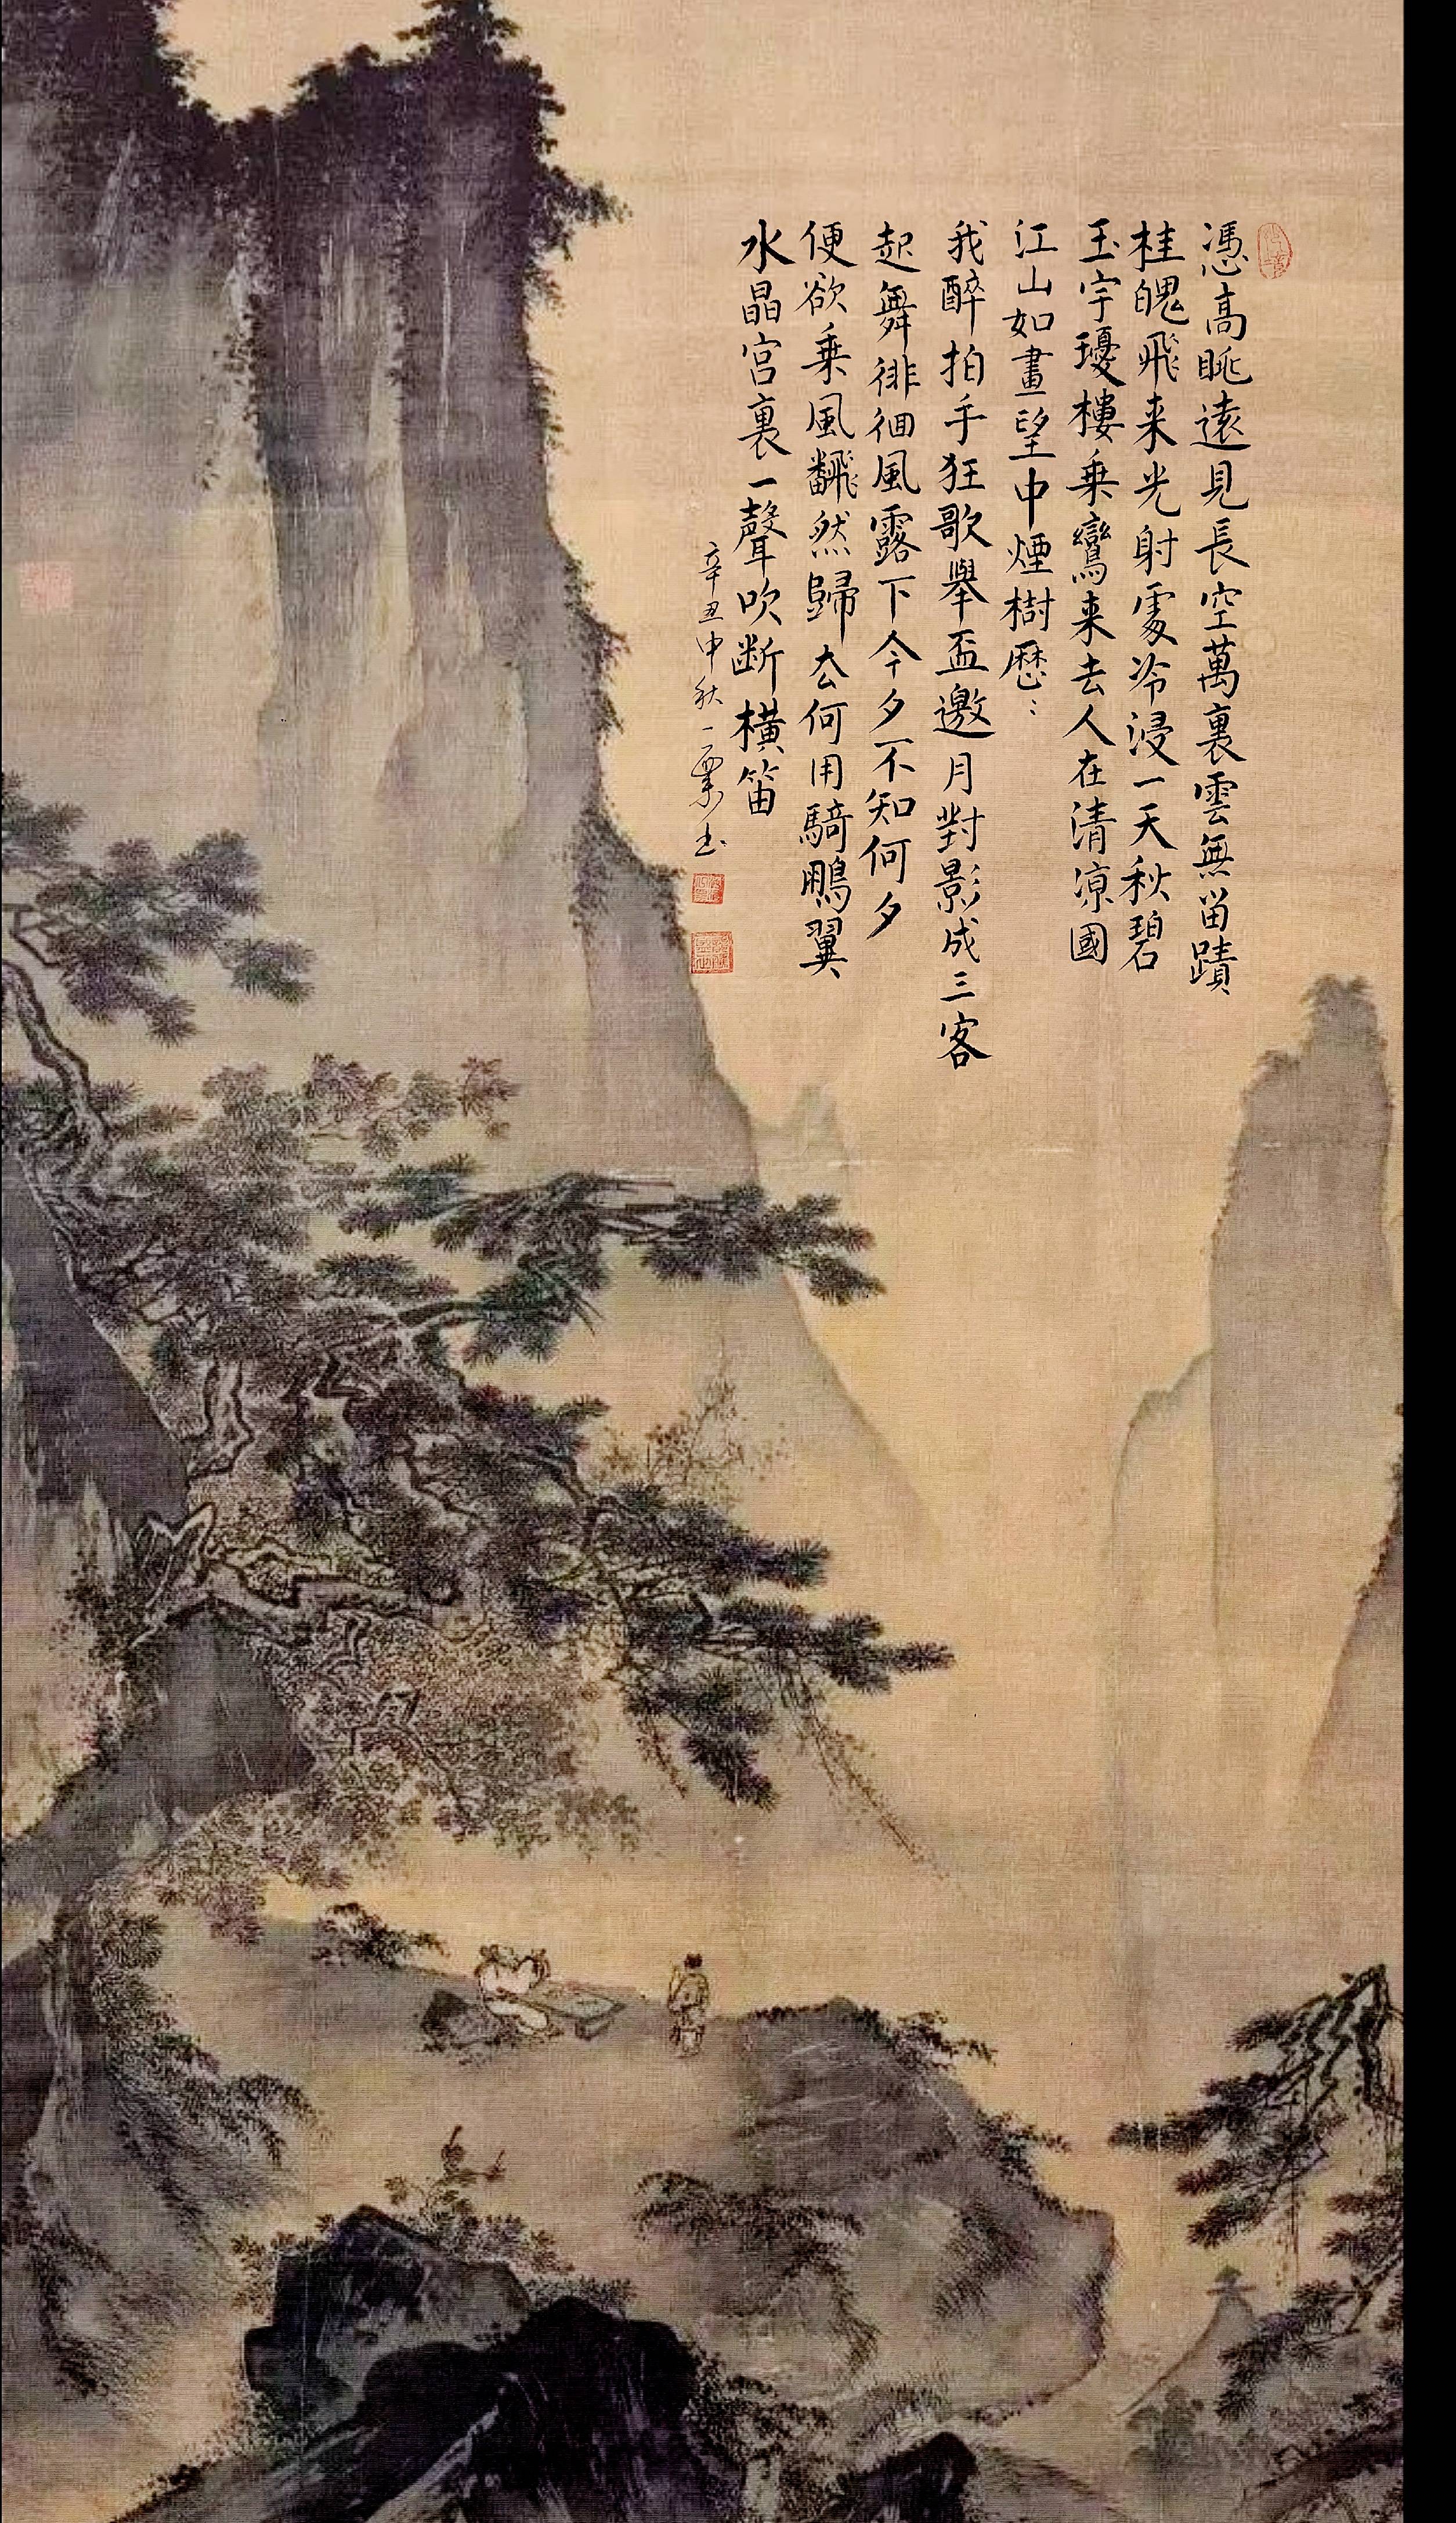 憑高眺遠見長空萬裏雲無畱蹟
桂魄飛来光射處冷浸一天秋碧
玉宇瓊樓乗鸞来去人在清涼國
江山如畫望中煙樹歷〻
我醉拍手狂歌舉盃邀月對影成三客
起舞徘徊風露下今夕不知何夕
便欲乗風飜然歸去何用騎鵬翼
水晶宮裏一聲吹断橫笛
辛丑中秋一粟书